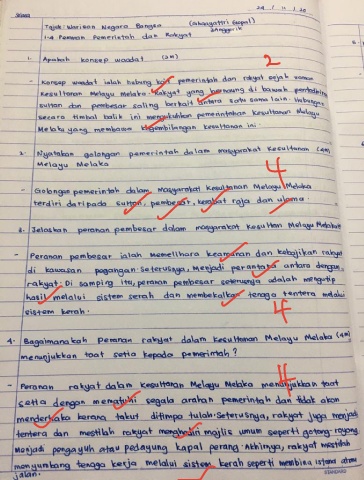 Selasa 24 / 11 / 20
Tajuk: Warisan Negara Bangsa
1.4 Peranan Pemerintah dan Rakyat
1. Apakah konsep waadat (2m)
2
- Konsep waadat ialah hubung kait pemerintah dan rakyat sejak zaman
Kesultanan Melayu Melaka. Rakyat yang bernaung di bawah
sultan dan pembesar saling berkait antara satu sama lain. Hubungan
secara timbal balik ini mengukuhkan pemerintahan kesultanan Melayu
Melaka yang membawa kegemilangan kesultanan ini.
2. Nyatakan golongan pemerintah dalam masyarakat Kesultanan (4m)
Melayu Melaka
4
- Golongan pemerintah dalam masyarakat Kesultanan Melayu Melaka
terdiri daripada sultan, pembesar, kerabat raja dan ulama
3. Jelaskan peranan pembesar dalam masyarakat Kesultan Melayu Melaka
- Peranan pembesar ialah memelihara keamanan dan kebajikan rakyat
di kawasan pegangan. Seterusnya, menjadi perantara antara dengan
rakyat. Di samping itu, peranan pembesar seterusnya adalah mengutip
hasil melalui sistem serah dan membekalkan tenaga tentera melalui
sistem kerah.
4
4. Bagaimanakah peranan rakyat dalam Kesultanan Melayu Melaka (4m)
menunjukkan taat setia kepada pemerintah?
4
- Peranan rakyat dalam Kesultanan Melayu Melaka menunjukkan taat
setia dengan mematuhi segala arahan pemerintah dan tidak akan
menderhaka kerana takut ditimpa tulah. Seterusnya, rakyat juga menjadi
tentera dan mestilah rakyat menghadiri majlis umum seperti gotong royong,
menjadi pengayuh atau pedayung kapal perang. Akhirnya, rakyat mestilah
menyumbang tenaga kerja melalui sistem kerah seperti membina istana atau
jalan.